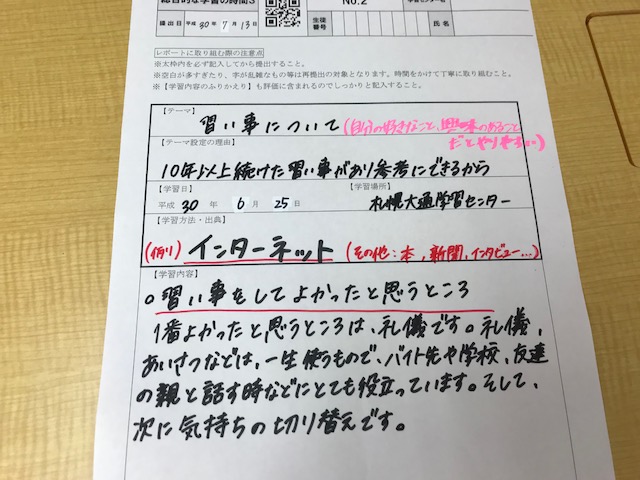 総合的な学習の時間3 No.2
提出日 平成 30 年 7 月 13 日 生徒番号 氏名
レポートに取り組む際の注意点
※太枠内を必ず記入してから提出すること。
※空白が多すぎたり、字が乱雑なもの等は再提出の対象となります。時間をかけて丁寧に取り組むこと。
※【学習内容のふりかえり】も評価に含まれるのでしっかりと記入すること。
【テーマ】
習い事について (自分の好きなこと、興味のあること
だとやりやすい)
【テーマ設定の理由】
10年以上続けた習い事があり参考にできるから
【学習日】 【学習場所】
平成 30 年 6 月 25 日 札幌大通学習センター
【学習方法・出典】
(例) インターネット (その他:本,新聞,インタビュー…)
【学習内容】
○習い事をしてよかったと思うところ
1番よかったと思うところは、礼儀です。礼儀、
あいさつなどは、一生使うもので、バイト先や学校、友達
の親と話す時などにとても役立っています。そして、
次に気持ちの切り替えです。